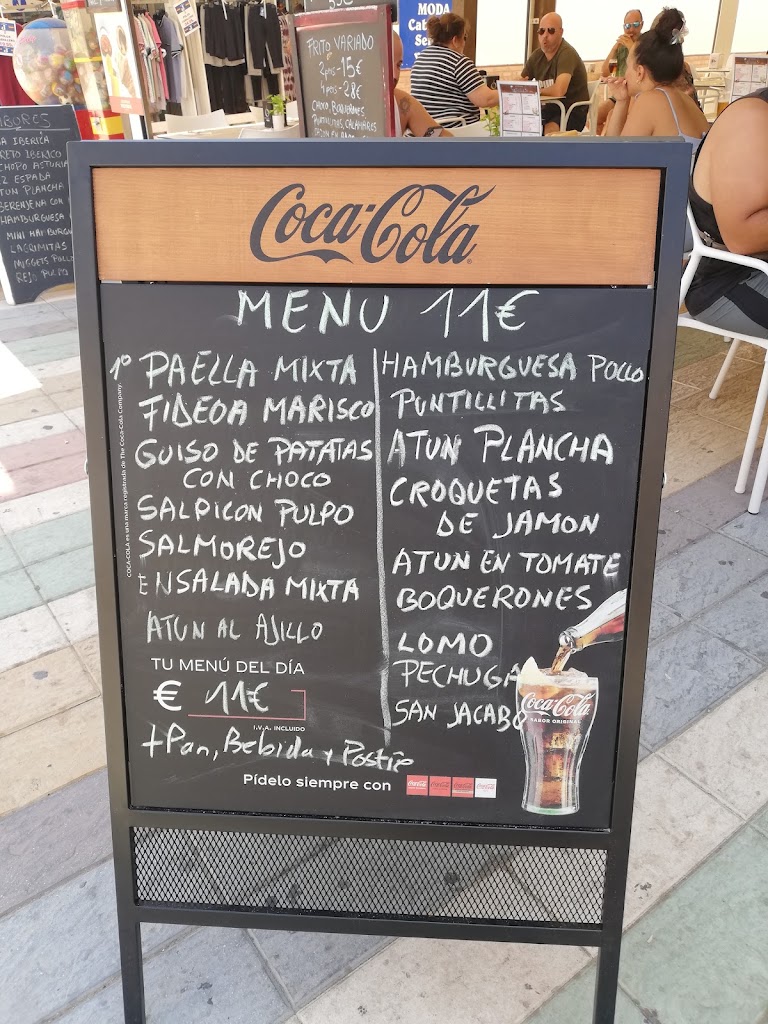 MODA
FRITO VARIADO
2 pers - 15€
4 pers - 28€
CHOCO, BOQUERONES,
PUNTILLITAS, CALAMARES
IBERICA
IBERICO
CHOPO ASTURIA
ESPADA
PLANCHA
BERENJENA CON
HAMBURGUESA
MINI HAMBURGU
LAGRIMITAS
NUGGETS POLLO
REJO PULPO
Coca-Cola
MENU 11€
1º PAELLA MIXTA
FIDEOA MARISCO
GUISO DE PATATAS
CON CHOCO
SALPICON PULPO
SALMOREJO
ENSALADA MIXTA
ATUN AL AJILLO
HAMBURGUESA POLLO
PUNTILLITAS
ATUN PLANCHA
CROQUETAS
DE JAMON
ATUN EN TOMATE
BOQUERONES
LOMO
PECHUGA
SAN JACABO
TU MENÚ DEL DÍA
€ 11€
I.V.A. INCLUIDO
+Pan, Bebida y Postre
Pídelo siempre con
Coca-Cola
SABOR ORIGINAL
COCA-COLA es una marca registrada de The Coca-Cola Company.